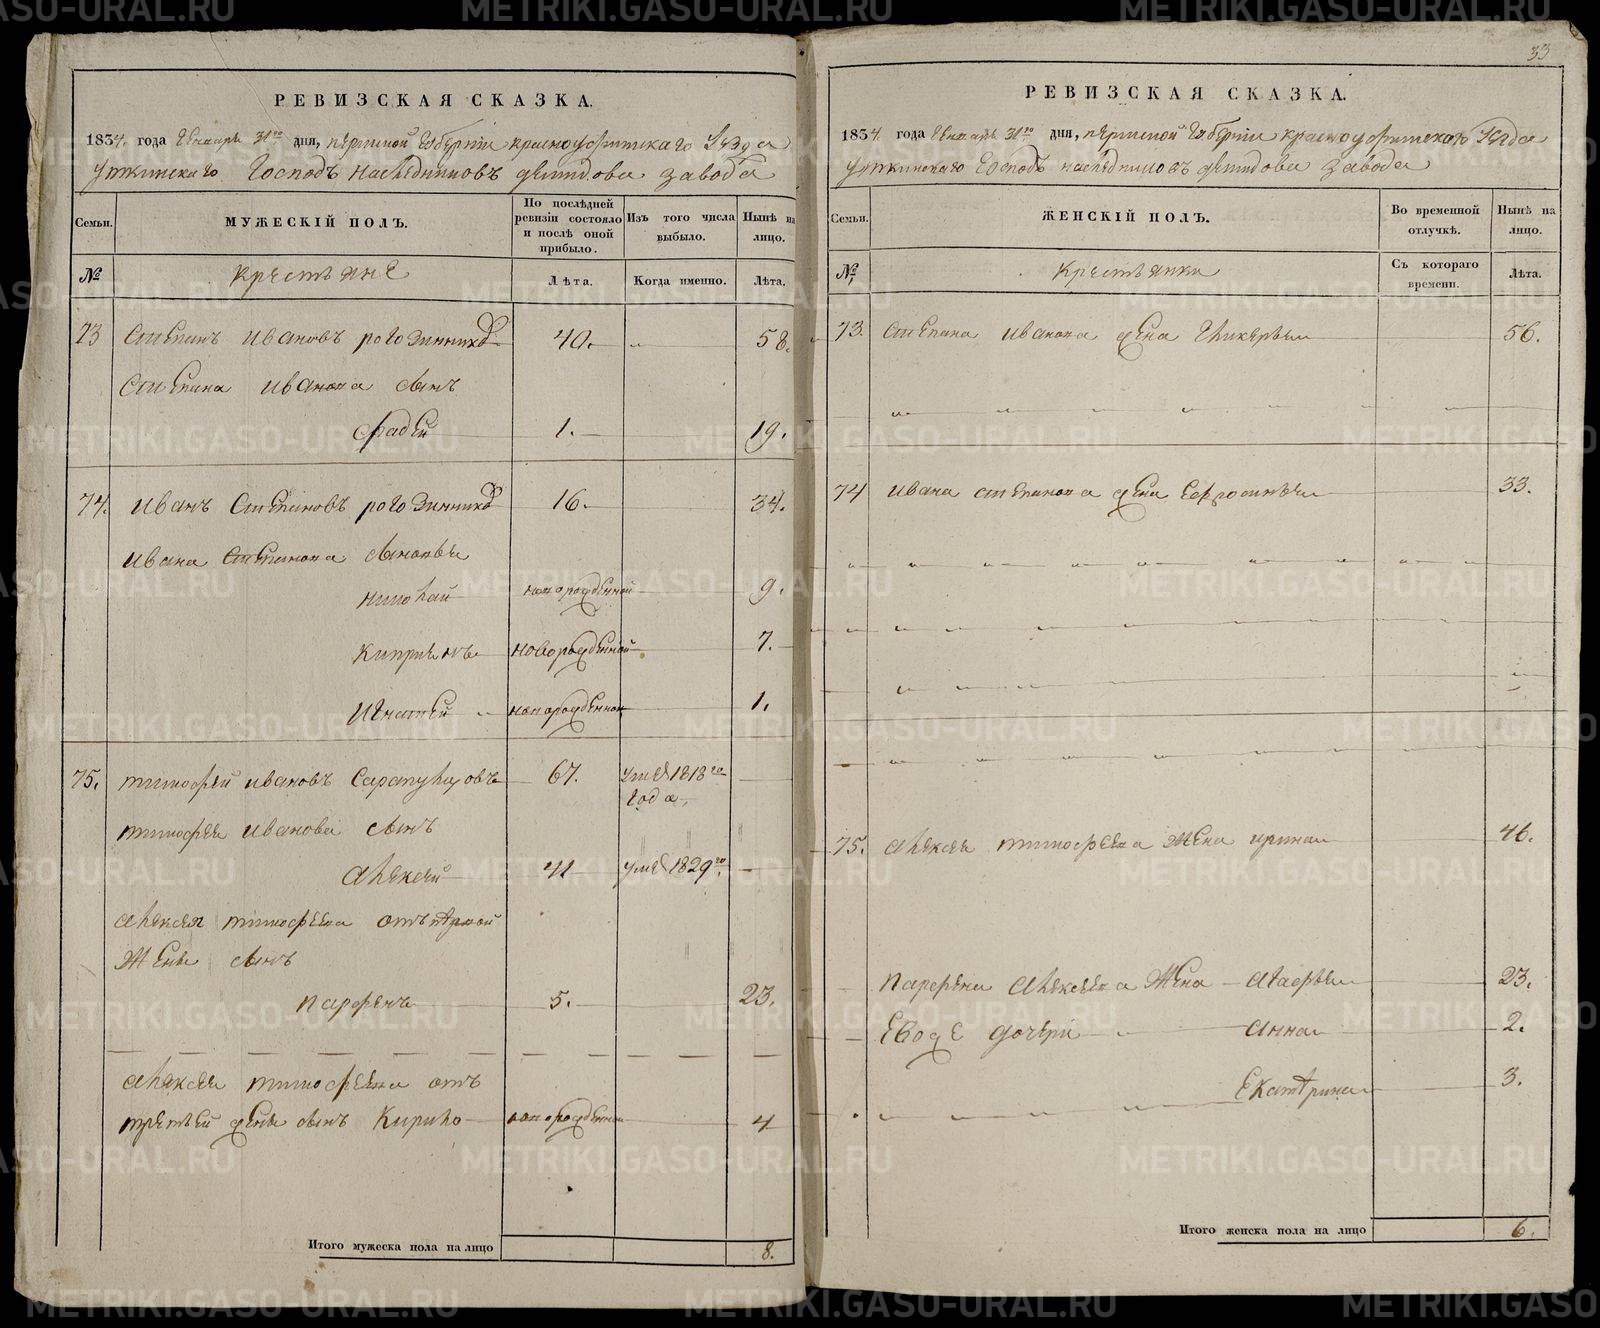 33
РЕВИЗСКАЯ СКАЗКА.
1834. года Генваря 31го дня, пермской Губернии красноуфимского Уезда
уткинского Господъ наследниковъ демидова завода
Семьи.
МУЖЕСКІЙ ПОЛЪ.
По послѣдней ревизіи состояло и послѣ оной прибыло.
Изъ того числа выбыло.
Нынѣ на лицо.
№
Крестьяне
Лѣта.
Когда именно.
Лѣта.
73 Степанъ Ивановъ рогозинниковъ 40. 58.
Степана Иванова сынъ
Фадей 1. 19.
74. Иванъ Степановъ рогозинниковъ 16. 34.
Ивана Степанова сыновьи
николай новорожденной 9.
Киприянъ новорожденной 7.
Игнатей новорожденной 1.
75. тимофей ивановъ Сарапулцовъ 67. умеръ 1818го
года
тимофея Иванова сынъ
Алексей 41 умеръ 1829го.
Алексея тимофеева отъ первой
жены сынъ
парфенъ 5. 23.
Алексея тимофеева отъ
третьей жены сынъ Кирило новорожденной 4
Итого мужеска пола на лицо 8.
РЕВИЗСКАЯ СКАЗКА.
1834. года Генваря 31го дня, пермской Губернии красноуфимского Уезда
уткинского Господъ наследниковъ демидова завода
Семьи.
ЖЕНСКІЙ ПОЛЪ.
Во временной отлучкѣ.
Нынѣ на лицо.
№
Крестьянки
Съ котораго времени.
Лѣта.
73. Степана Иванова жена Гликерья 56.
74 Ивана степанова жена Ефросинья 33.
75. Алексея тимофеева жена ирина 46.
Парфена Алексеева жена Агафья 23.
Евоже дочери Анна 2.
Екатерина 3.
Итого женска пола на лицо 6.
METRIKI.GASO-URAL.RU